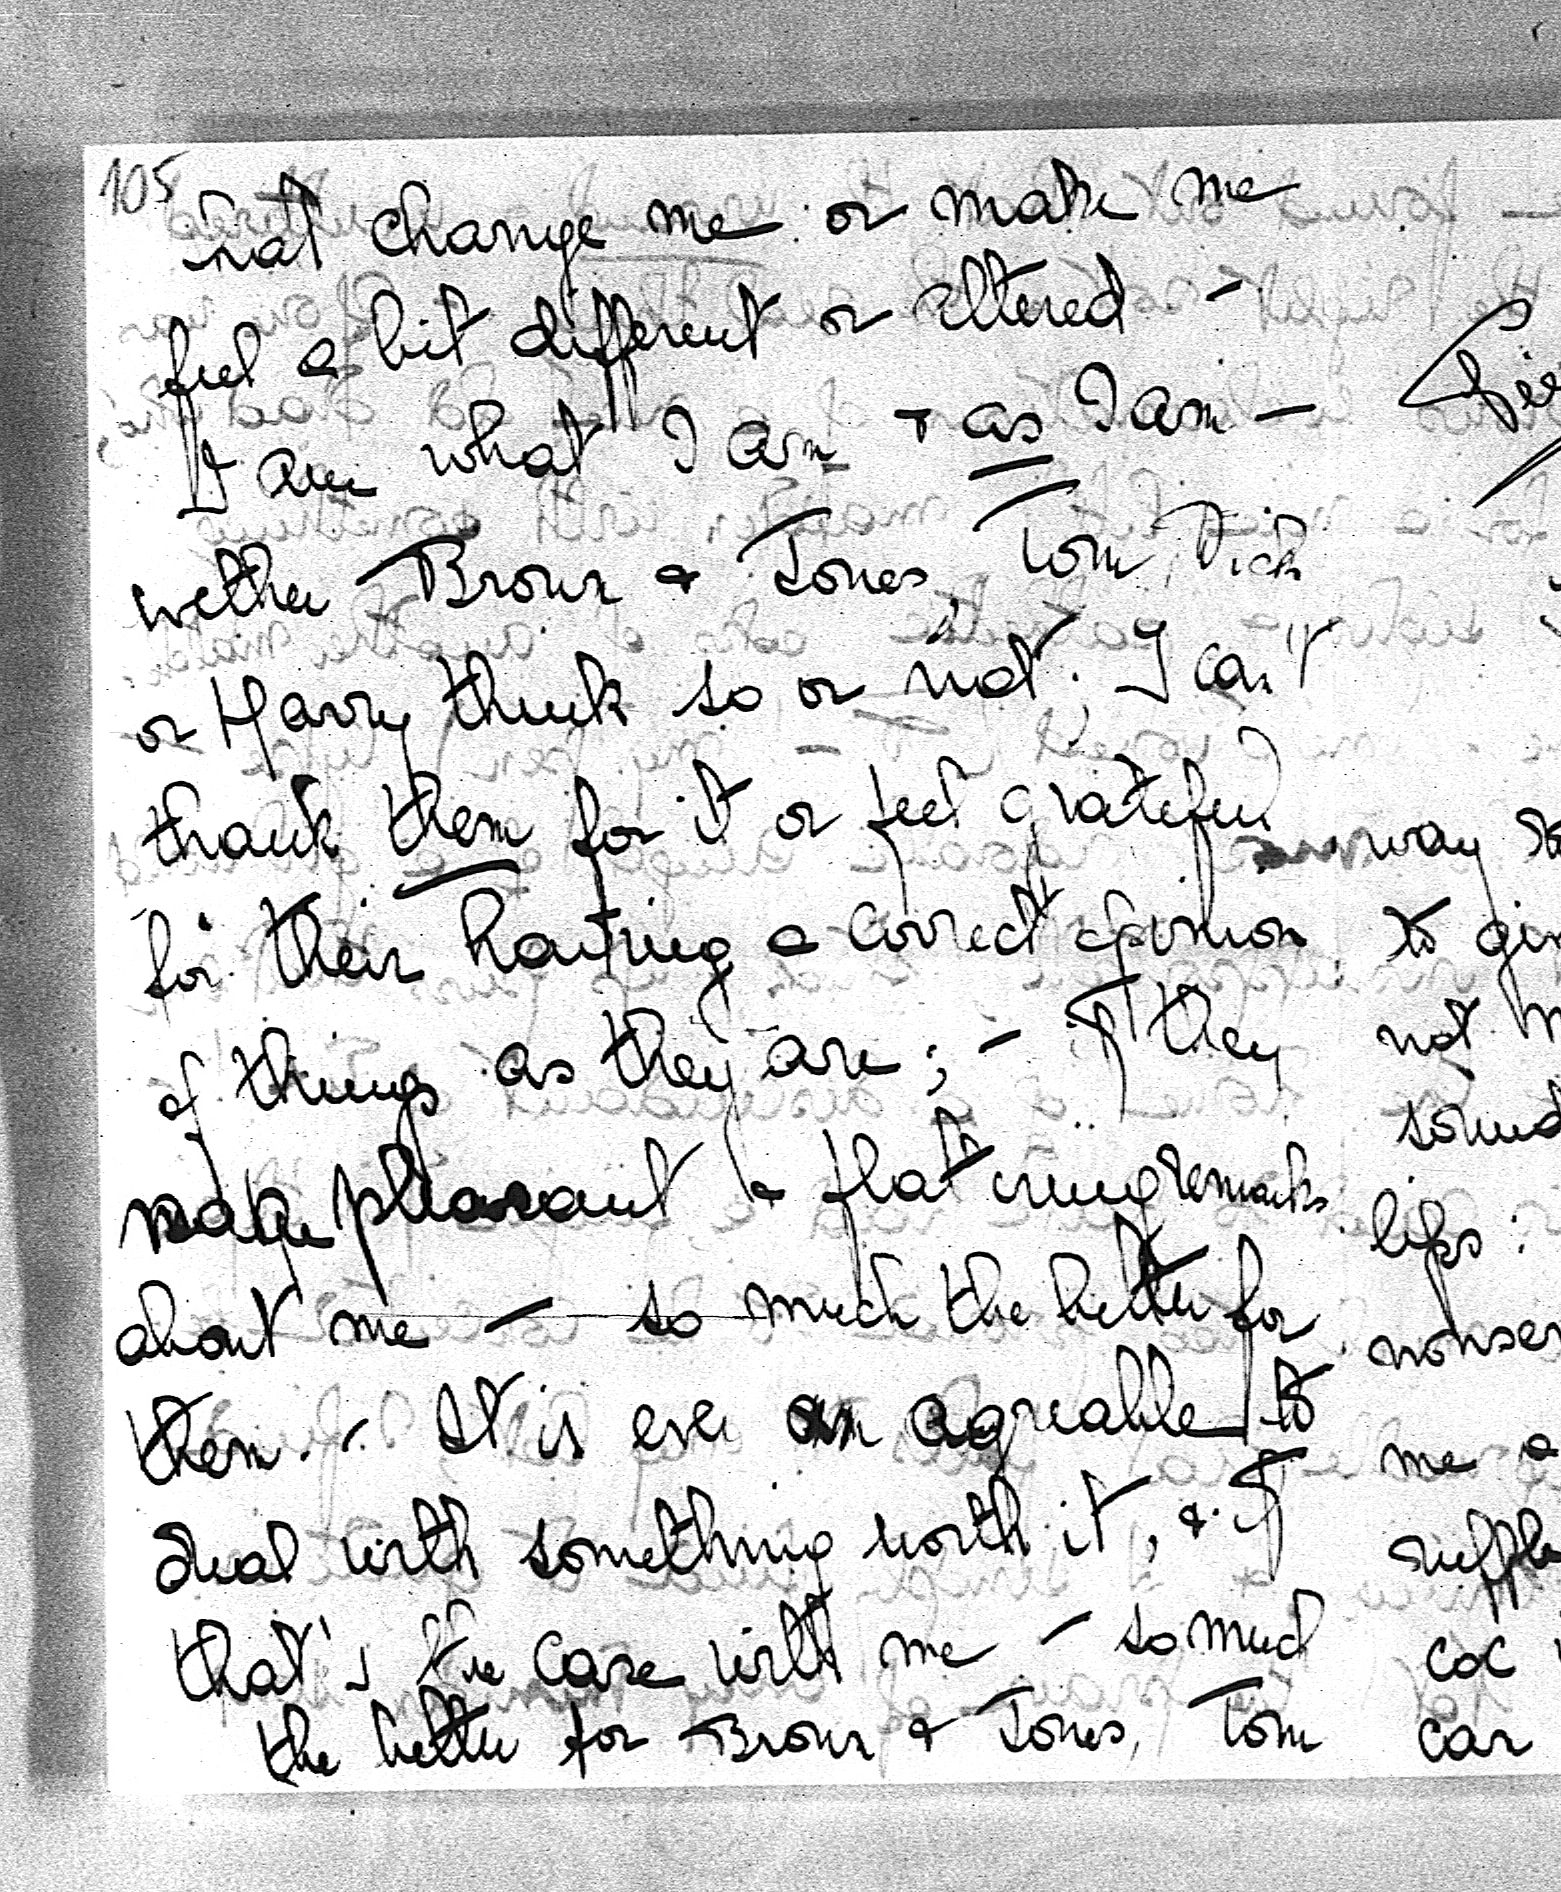 105
not change me or make me
feel a bit different or altered –
I am what I am & as I am –
wether Brown & Jones, Tom, Dick
or Harry think so or not; I can't
thank them for it or feel grateful
for their having a correct opinion
of things as they are; – If they
make pleasant & flattering remarks
about me – so much the better for
them. – It is ever an agreable to
deal with something worth it, & if
that's the case with me – so much
the better for Brown & Jones, Tom
way
to
not
lips:
me a
car